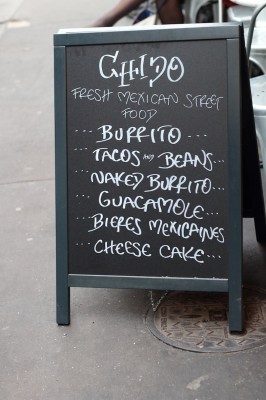 CHIDO
FRESH MEXICAN STREET
FOOD
... BURRITO ...
... TACOS AND BEANS...
... NAKED BURRITO...
... GUACAMOLE...
... BIERES MEXICAINES
... CHEESE CAKE...